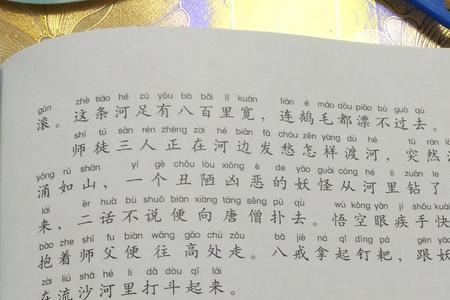 gǔn zhè tiáo hé zú yǒu bā bǎi lǐ kuān lián é máo dōu piāo bú guò qù
滚。这条河足有八百里宽，连鹅毛都漂不过去。
shī tú sān rén zhèng zài hé biān fā chóu zěn yàng dù hé tū rán
师徒三人正在河边发愁怎样渡河，突然
yǒng rú shān yí gè chǒu lòu xiōng è de yāo guài cóng hé lǐ zuān le
涌如山，一个丑陋凶恶的妖怪从河里钻了
lái èr huà bù shuō biàn xiàng táng sēng pū qù wù kōng yǎn jí shǒu kuài
来，二话不说便向唐僧扑去。悟空眼疾手快
bào zhe shī fu biàn wǎng gāo chù zǒu bā jiè ná qǐ dīng pá gēn
抱着师父便往高处走。八戒拿起钉耙，跟妖
zài liú shā hé lǐ dǎ dòu qǐ lái
在流沙河里打斗起来。